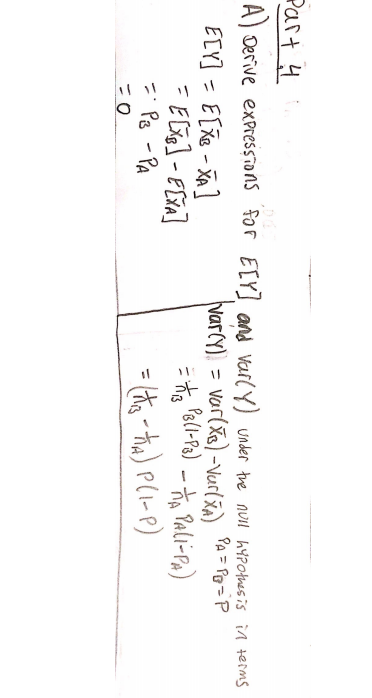 Part 4
A) Derive expressions for E[Y] and Var(Y) under the null hypothesis in terms
E[Y] = E[X̄B - X̄A]
= E[X̄B] - E[X̄A]
= PB - PA
= 0
Var(Y) = Var(X̄B) - Var(X̄A)
PA = PB = P
= 1/nB PB(1-PB) - 1/nA PA(1-PA)
= (1/nB - 1/nA) P(1-P)